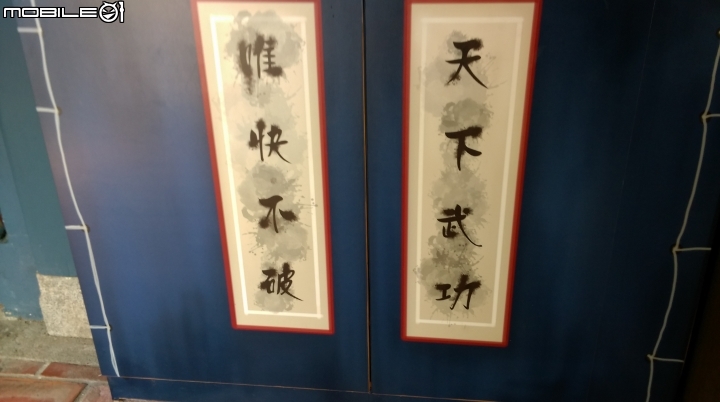 MOBILE01
天下武功
唯快不破